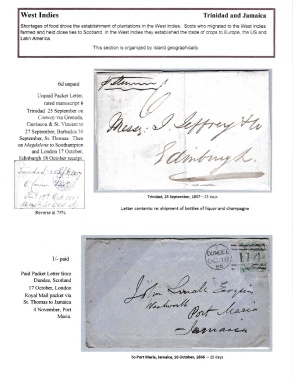 West Indies
Trinidad and Jamaica
Shortages of food drove the establishment of plantations in the West Indies. Scots who migrated to the West Indies
farmed and held close ties to Scotland. In the West Indies they established the trade of crops to Europe, the US and
Latin America.
This section is organized by island geographically.
6d unpaid
Unpaid Packet Letter,
rated manuscript 6
Trinidad 25 September on
Conway via Grenada,
Carriacou & St. Vincent to
27 September, Barbados 30
September, St. Thomas. Then
on Magdalena to Southampton
and London 17 October,
Edinburgh 18 October receipt.
Reverse at 75%
6
Messrs J. Jeffrey & Co
Edinburgh
Trinidad, 25 September, 1857 – 23 days
Letter contents: re: shipment of bottles of liquor and champagne
1/- paid
Paid Packet Letter from
Dundee, Scotland
17 October, London
Royal Mail packet via
St. Thomas to Jamaica
4 November, Port
Maria.
DUNDEE
114
Esquire
Port Maria
Jamaica
To Port Maria, Jamaica, 16 October, 1866 – 19 days